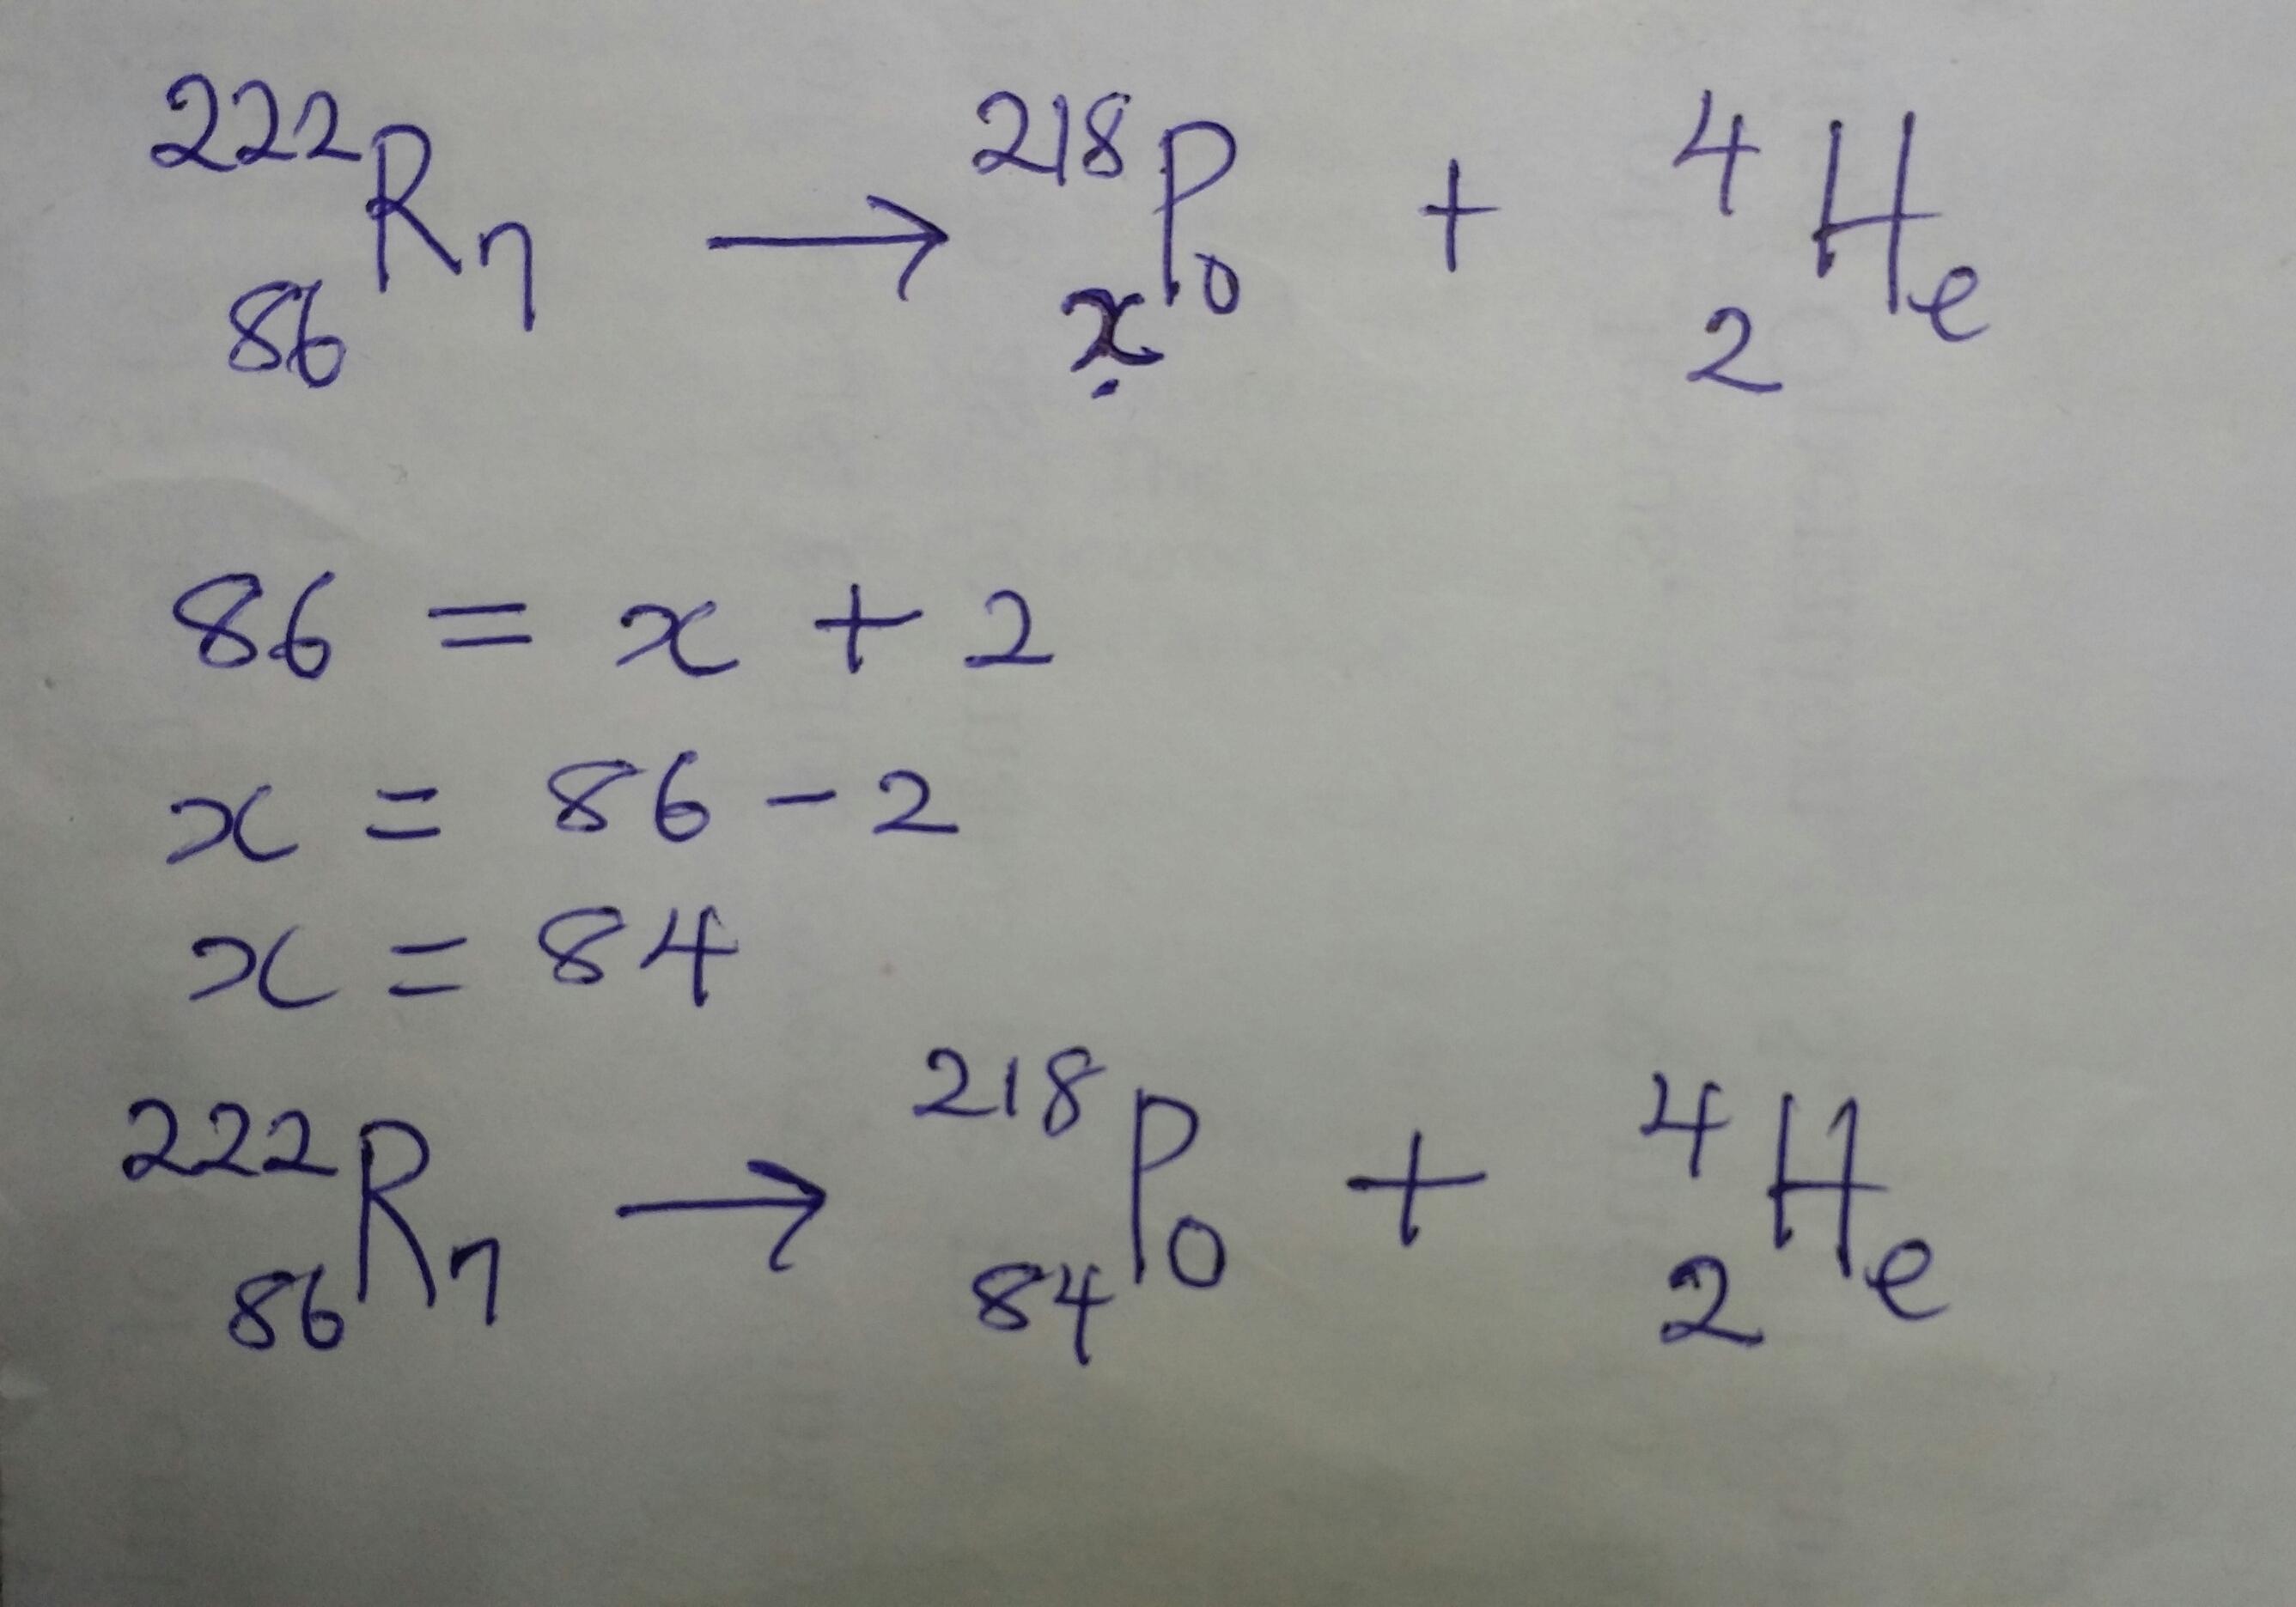 ²²²₈₆Rn → ²¹⁸ₓPo + ⁴₂He
86 = x + 2
x = 86 - 2
x = 84
²²²₈₆Rn → ²¹⁸₈₄Po + ⁴₂He